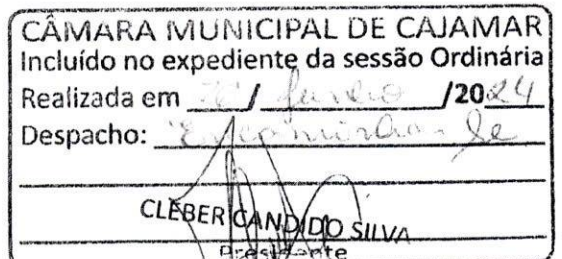 CÂMARA MUNICIPAL DE CAJAMAR
Incluído no expediente da sessão Ordinária
Realizada em / junho /2024
Despacho: Encaminha-se
CLEBER CANDIDO SILVA
Presidente